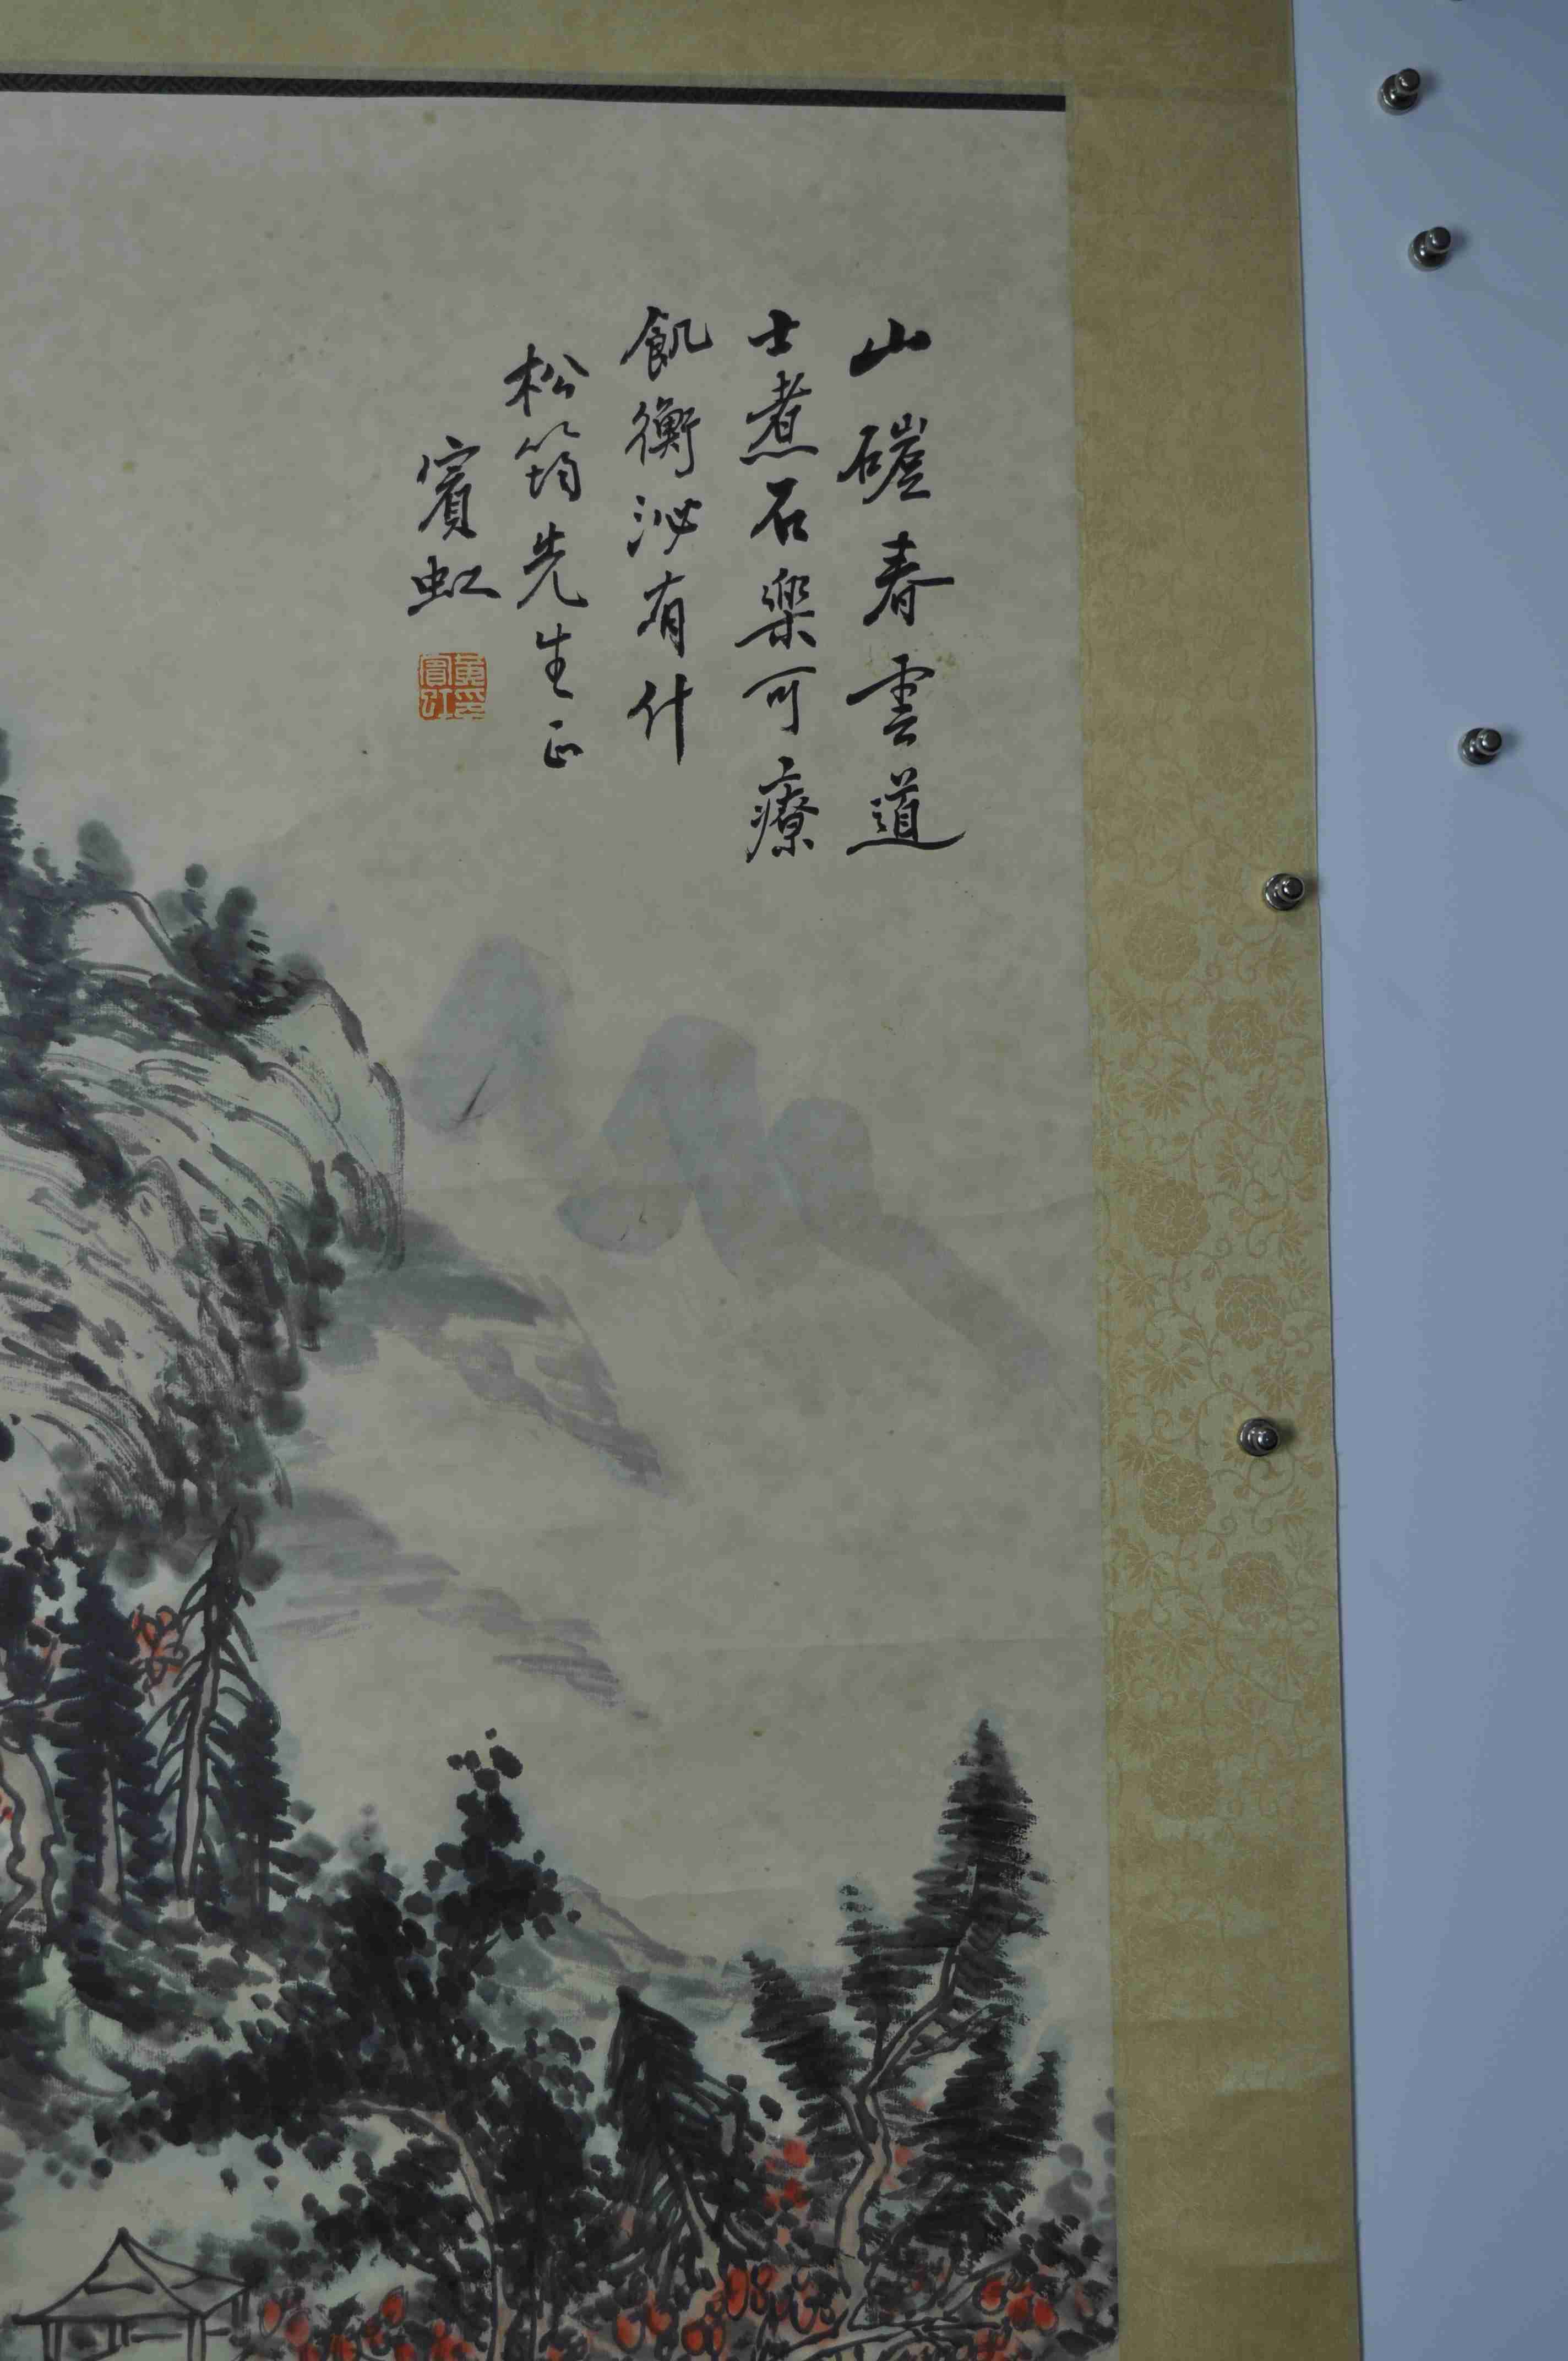 山磴春雲道
士煮石樂可療
飢衡泌有什
松筠先生正
賓虹
黃賓虹印